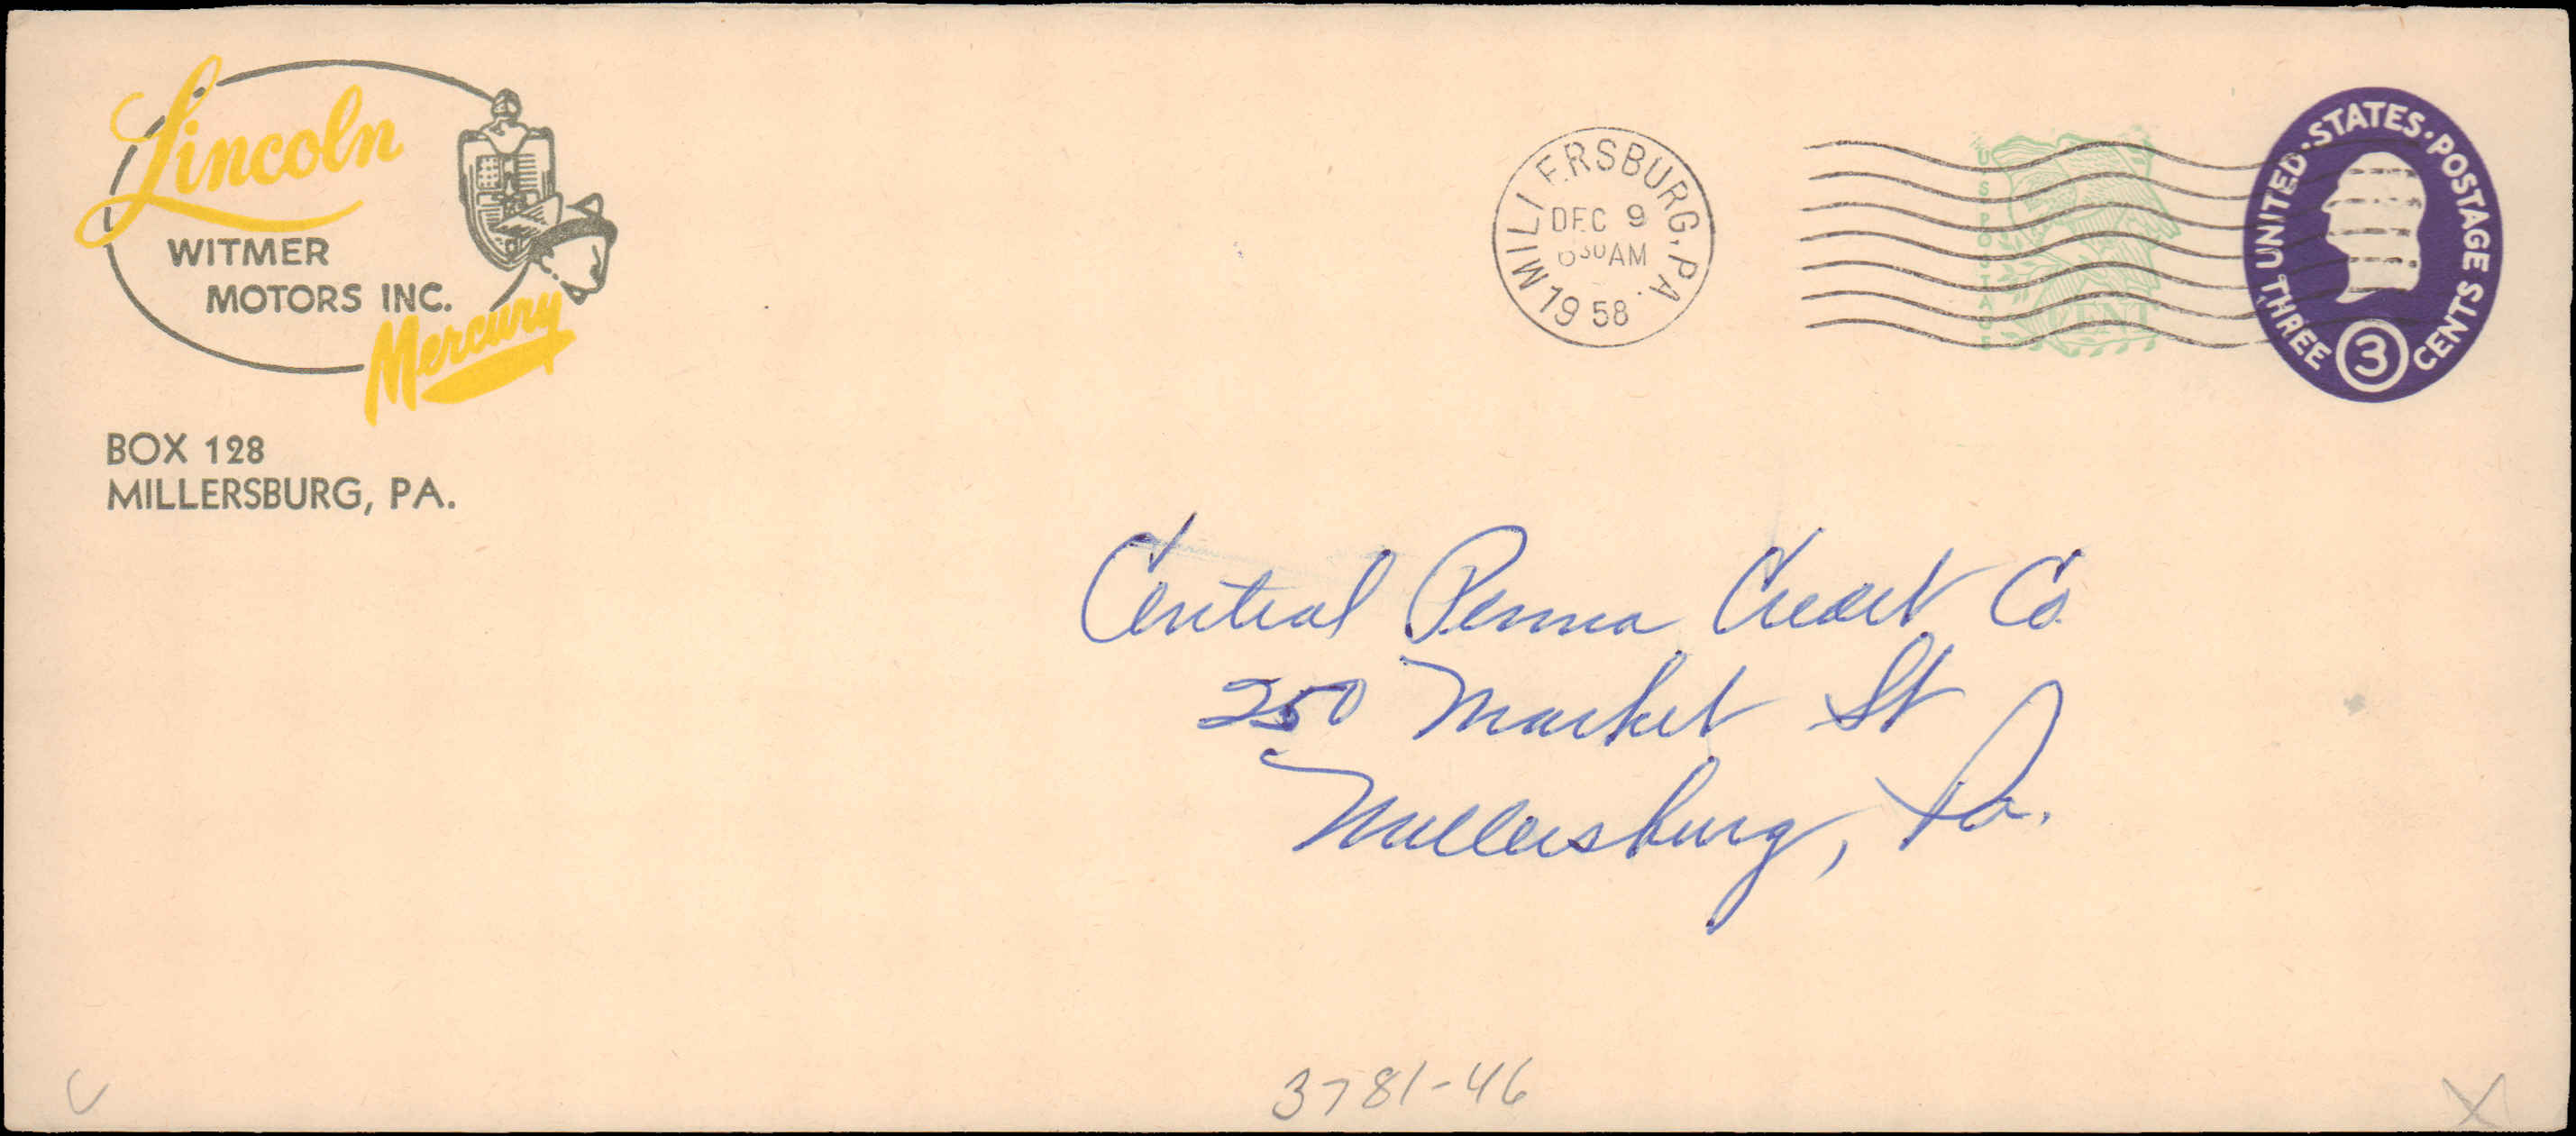 Lincoln
WITMER
MOTORS INC.
Mercury
BOX 128
MILLERSBURG, PA.
MILLERSBURG, PA.
DEC 9
630 AM
1958
U S POSTAGE
CENT
UNITED·STATES·POSTAGE
THREE 3 CENTS
Central Penna Credit Co
250 Market St
Millersburg, Pa.
3781-46